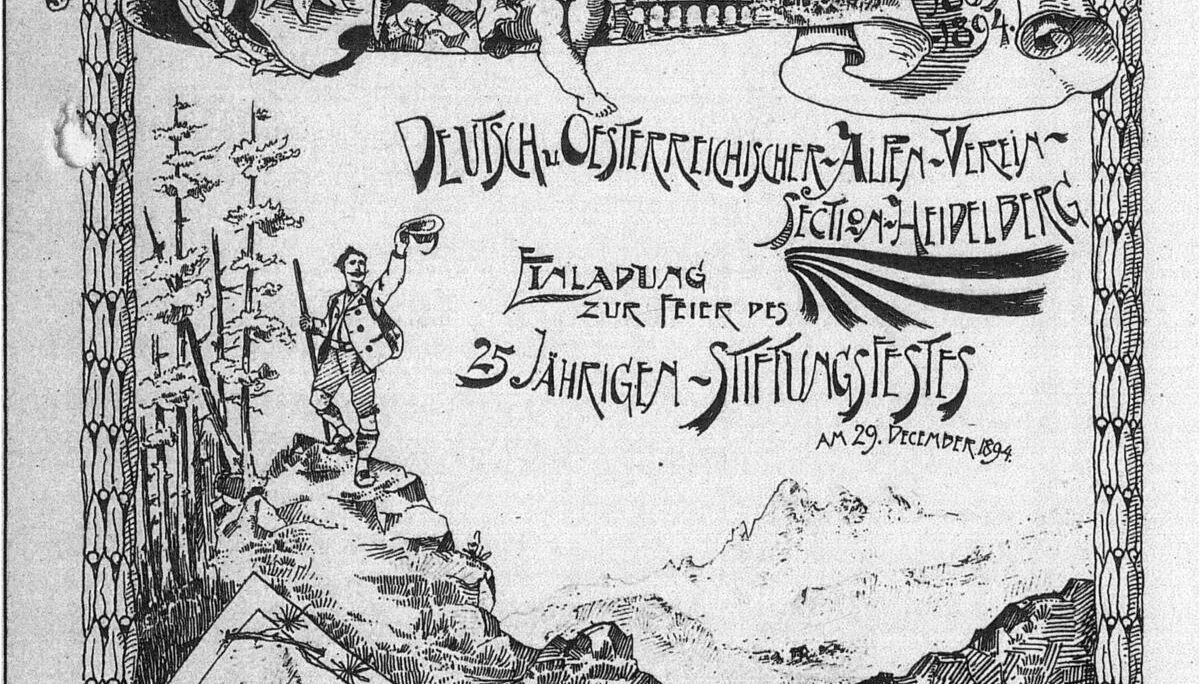 1894.
DEUTSCH u. OESTERREICHISCHER-ALPEN-VEREIN-
SECTION-HEIDELBERG
EINLADUNG
ZUR FEIER DES
25 JÄHRIGEN-STIFTUNGSFESTES
AM 29. DECEMBER.1894.